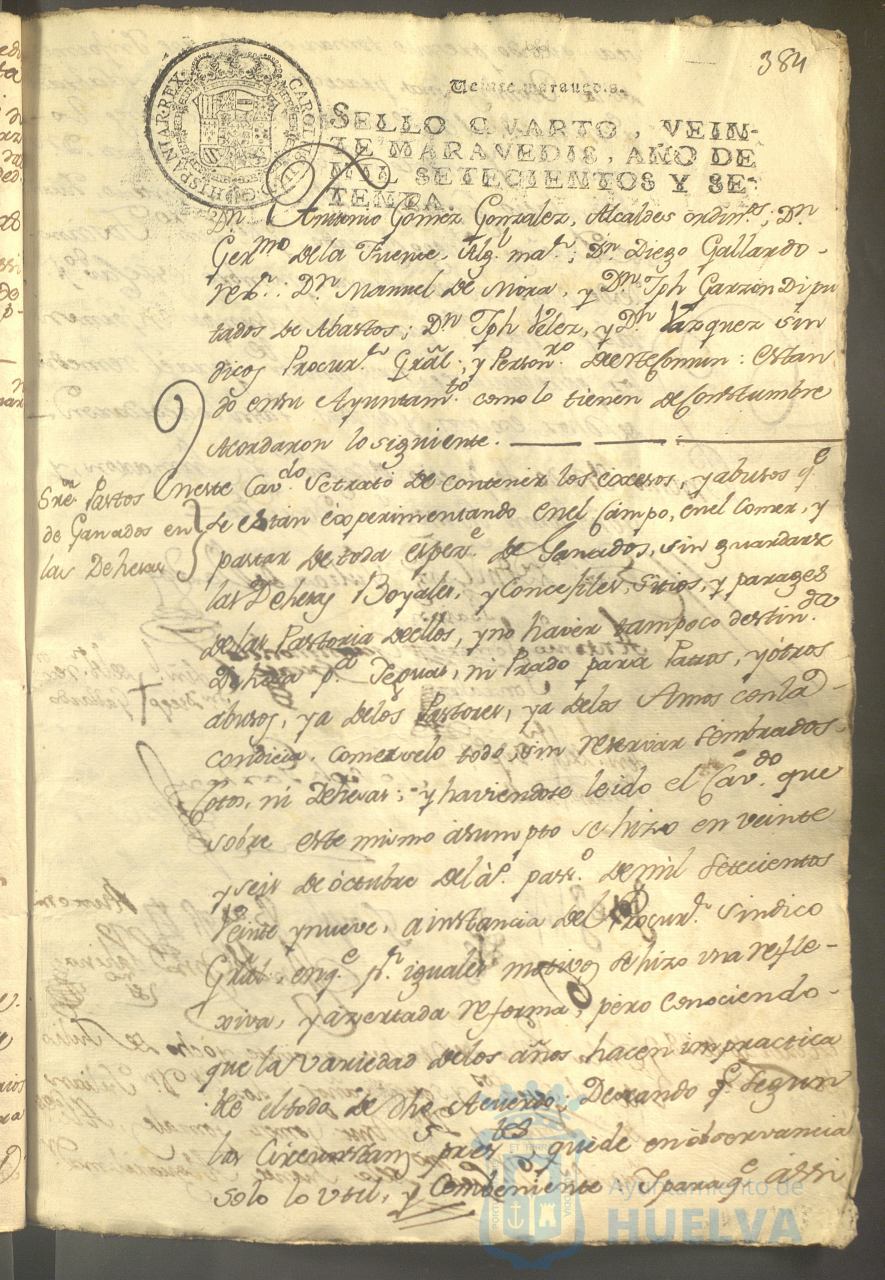 384
CAROLUS III D G HISPANIAR REX
Veinte maravedis.
SELLO QVARTO, VEIN-
TE MARAVEDIS, AÑO DE
MIL SETECIENTOS Y SE-
TENTA.
Dn. Antonio Gomez Gonzalez, Alcaldes ordin.s; Dn.
Ger.mo de la Fuente, Alg.l ma.r; Dn. Diego Gallardo
rex.r; Dn. Manuel de Mora, y Dn. Jph Garzon Dipu
tados de Abastos; Dn. Jph Velez, y Dn. Vazquez Sin
dicos Procur.r Gràl, y Person.ro deesteComun: estan
do ensu Ayuntam.to como lo tienen deConstumbre
Acordaron lo siguiente.
Sre. Pastos
de Ganados en
las Dehesas
Eneste Cav.do Setrató de contener los excesos, y abusos q.e
se estàn experimentando enel Campo, enel comer, y
pastar de toda espez.e de Ganados, sin guardarse
las Dehesas Boyales, y Concejiles, Sitios, y parages
delas Pastoria deellos, yno haver tampoco destin.da
Dehesa p.a Yeguas, ni Prado para Patros, yótros
abusos, ya delos Pastores, ya delos Amos conla
condicia. comerselo todo, sin reservar sembrados
Cotos, ni Dehesas; y haviendose leido el Cav.do que
sobre este mismo asumpto se hizo en veinte
y seis de octubre del a.o pass.o de mil Setecientos
Veinte ynueve, a instancia del Procur.r Sindico
Gràl, enq.e p.r iguales motivos se hizo una refle-
xiva, yazertada reforma, pero conociendo
que la variedad delos años hacen impractica
ble eltodo de dho Acuerdo; Deseando q.e Segun
las Circunstan.s pres.tes quede en observancia
Solo lo Util, y Combeniente Y para q.e assi
Ayuntamiento de
HUELVA